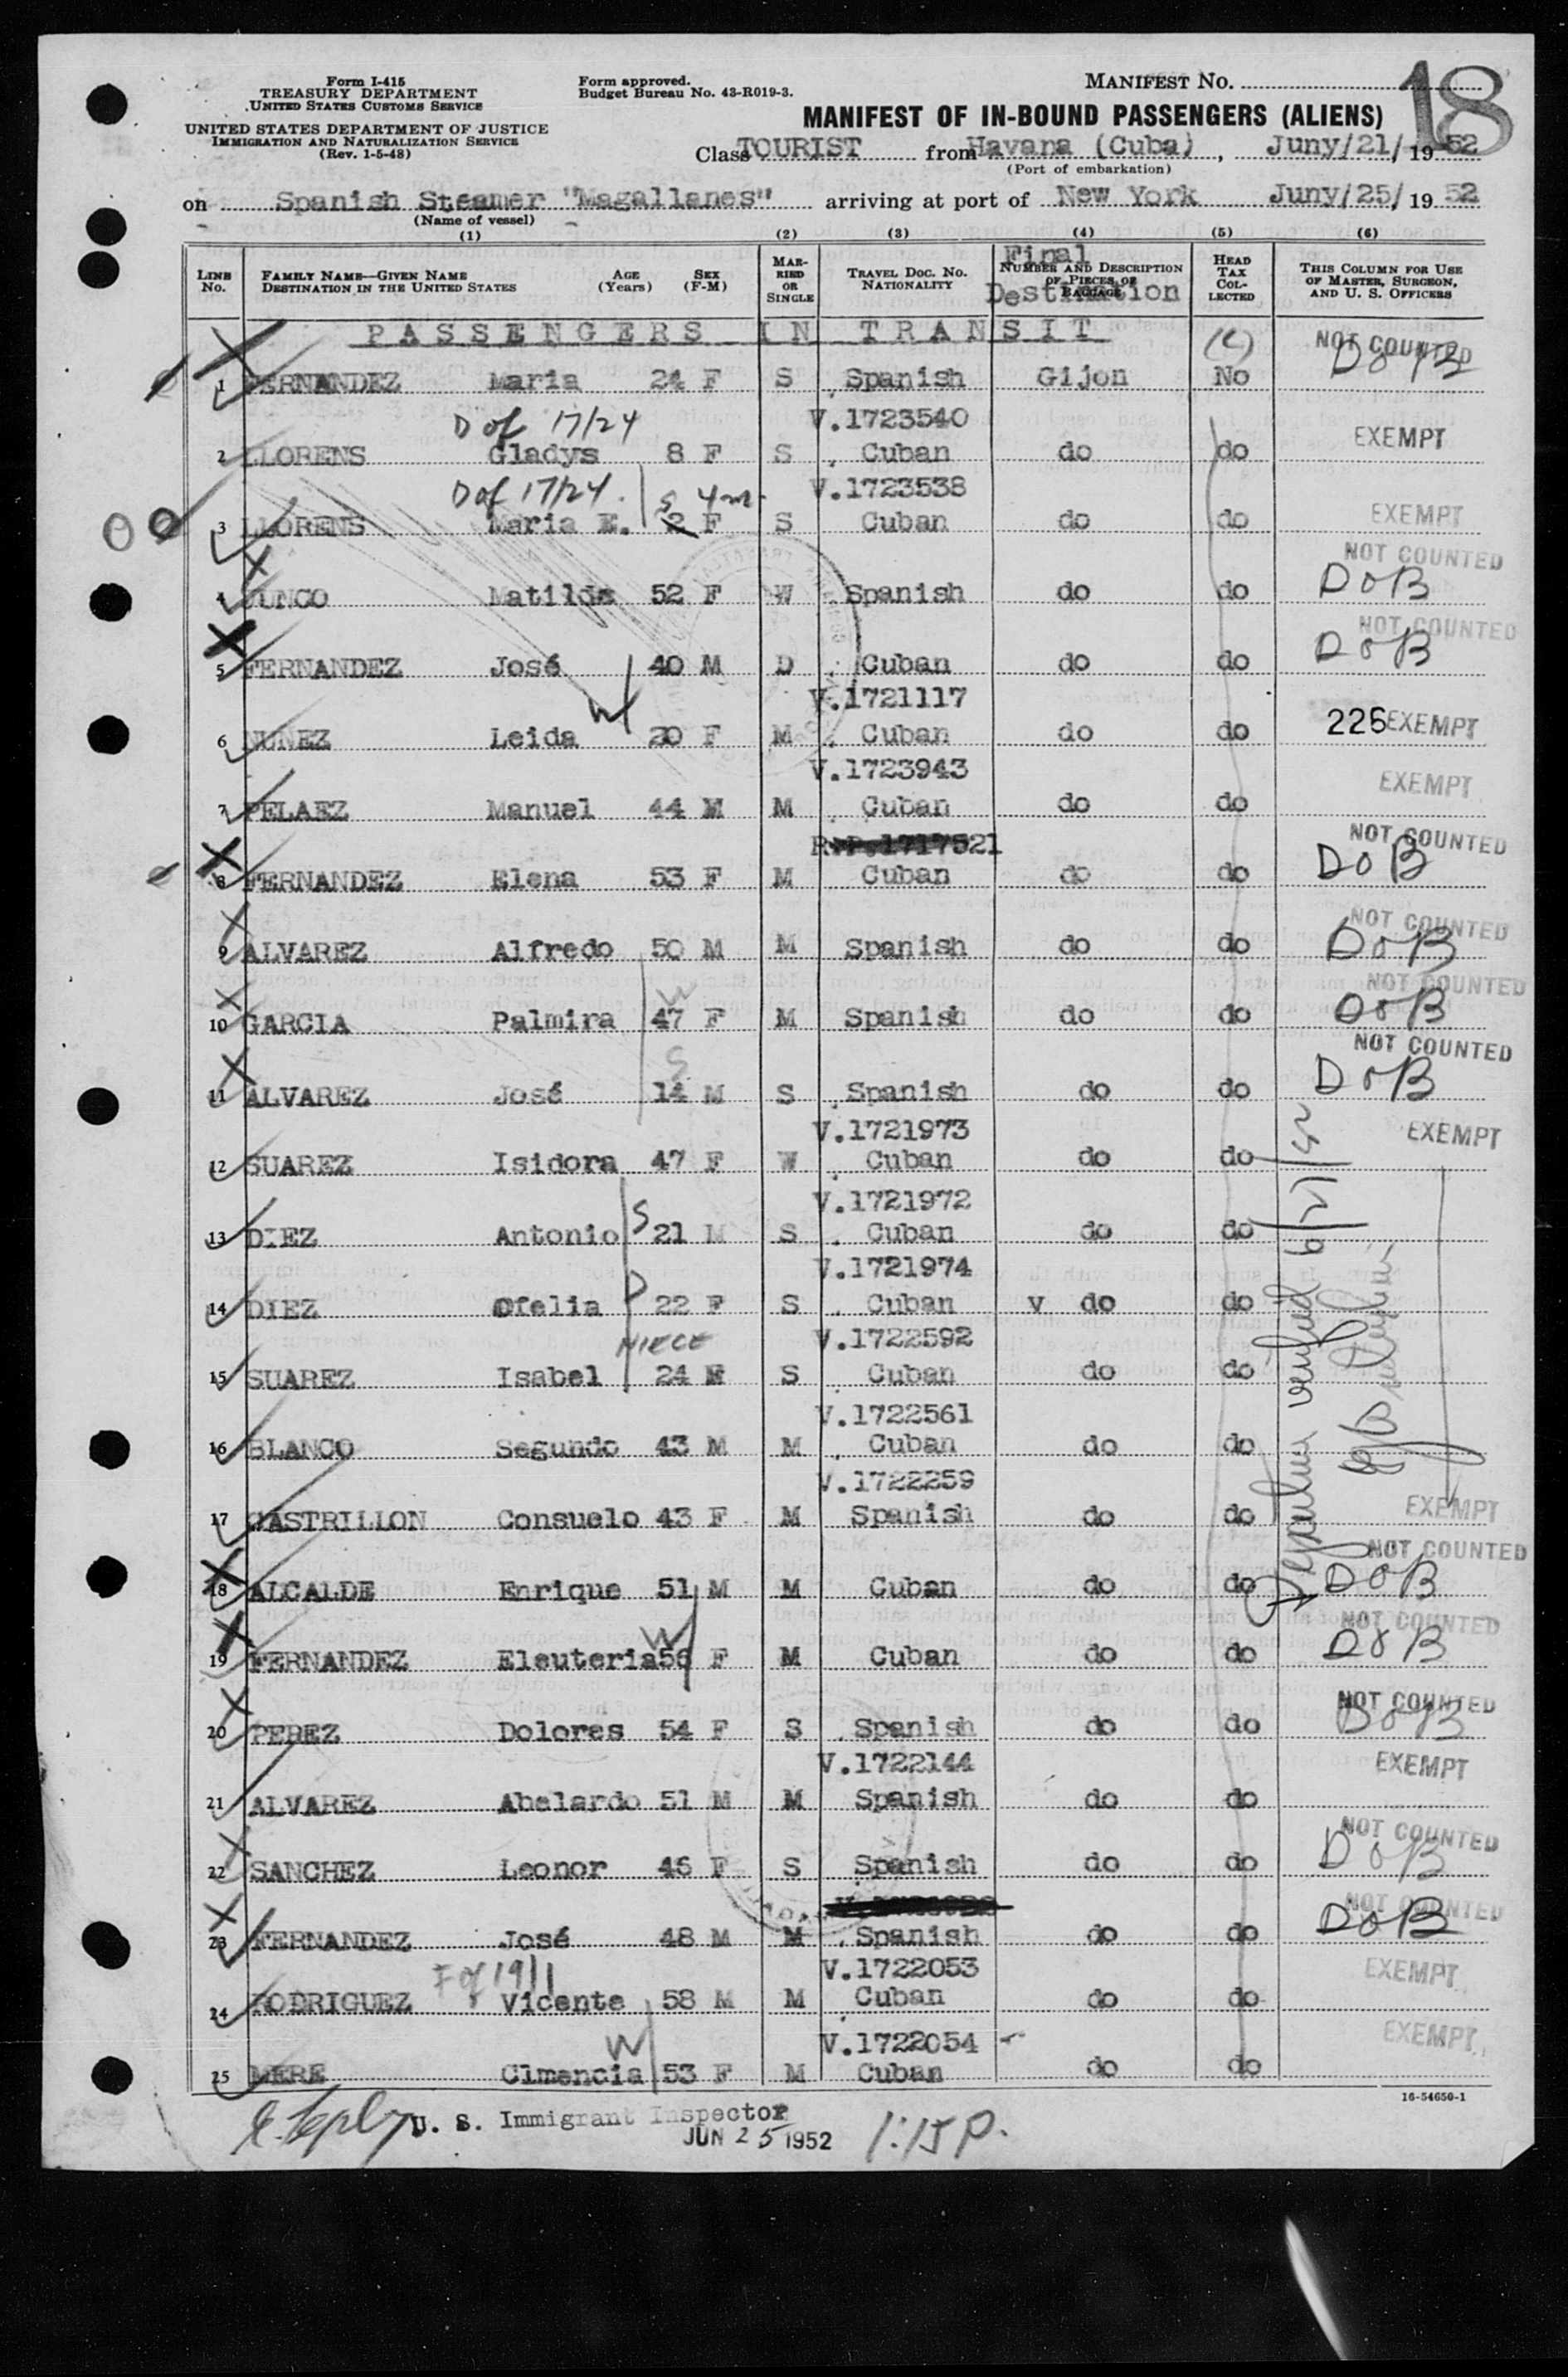 Form I-415
TREASURY DEPARTMENT
UNITED STATES CUSTOMS SERVICE
UNITED STATES DEPARTMENT OF JUSTICE
IMMIGRATION AND NATURALIZATION SERVICE
(Rev. 1-5-48)
Form approved.
Budget Bureau No. 43-R019-3.
MANIFEST NO. 18
MANIFEST OF IN-BOUND PASSENGERS (ALIENS)
Class TOURIST from Havana (Cuba), Juny/21/ 19 52
(Port of embarkation)
on Spanish Steamer "Magallanes" arriving at port of New York Juny/25/ 19 52
(Name of vessel)
(1) (2) (3) (4) (5) (6)
LINE No. FAMILY NAME—GIVEN NAME DESTINATION IN THE UNITED STATES AGE (Years) SEX (F-M) MARRIED OR SINGLE TRAVEL DOC. No. NATIONALITY NUMBER AND DESCRIPTION OF PIECES OF BAGGAGE Final Destination HEAD TAX COLLECTED THIS COLUMN FOR USE OF MASTER, SURGEON, AND U. S. OFFICERS
PASSENGERS IN TRANSIT
NOT COUNTED
1 FERNANDEZ Maria 24 F S Spanish Gijon No DoB
D of 17/24 V.1723540
2 LLORENS Gladys 8 F S Cuban do do EXEMPT
D of 17/24 S 4m V.1723538
3 LLORENS Maria E. 2 F S Cuban do do EXEMPT
NOT COUNTED
4 JUNCO Matilde 52 F W Spanish do do DoB
NOT COUNTED
5 FERNANDEZ José 40 M D Cuban do do DoB
W V.1721117
6 NUNEZ Leida 20 F M Cuban do do 226 EXEMPT
V.1723943
7 PELAEZ Manuel 44 M M Cuban do do EXEMPT
R.P.1717521 NOT COUNTED
8 FERNANDEZ Elena 53 F M Cuban do do DoB
NOT COUNTED
9 ALVAREZ Alfredo 50 M M Spanish do do DoB
W NOT COUNTED
10 GARCIA Palmira 47 F M Spanish do do DoB
S NOT COUNTED
11 ALVAREZ José 14 M S Spanish do do DoB
V.1721973
12 SUAREZ Isidora 47 F W Cuban do do EXEMPT
V.1721972
13 DIEZ Antonio S 21 M S Cuban do do
V.1721974
14 DIEZ Ofelia D 22 F S Cuban v do do
NIECE V.1722592
15 SUAREZ Isabel 24 F S Cuban do do
V.1722561
16 BLANCO Segundo 43 M M Cuban do do
V.1722259
17 CASTRILLON Consuelo 43 F M Spanish do do EXEMPT
Departure verified
NOT COUNTED
18 ALCALDE Enrique 51 M M Cuban do do DoB
W NOT COUNTED
19 FERNANDEZ Eleuteria 56 F M Cuban do do DoB
NOT COUNTED
20 PEREZ Dolores 54 F S Spanish do do DoB
V.1722144
21 ALVAREZ Abelardo 51 M M Spanish do do EXEMPT
NOT COUNTED
22 SANCHEZ Leonor 46 F S Spanish do do DoB
NOT COUNTED
23 FERNANDEZ José 48 M M Spanish do do DoB
F of 19/1 V.1722053
24 RODRIGUEZ Vicente 58 M M Cuban do do EXEMPT
W V.1722054
25 MERE Clmencia 53 F M Cuban do do EXEMPT
16-54650-1
U. S. Immigrant Inspector
JUN 25 1952 1:15 P.